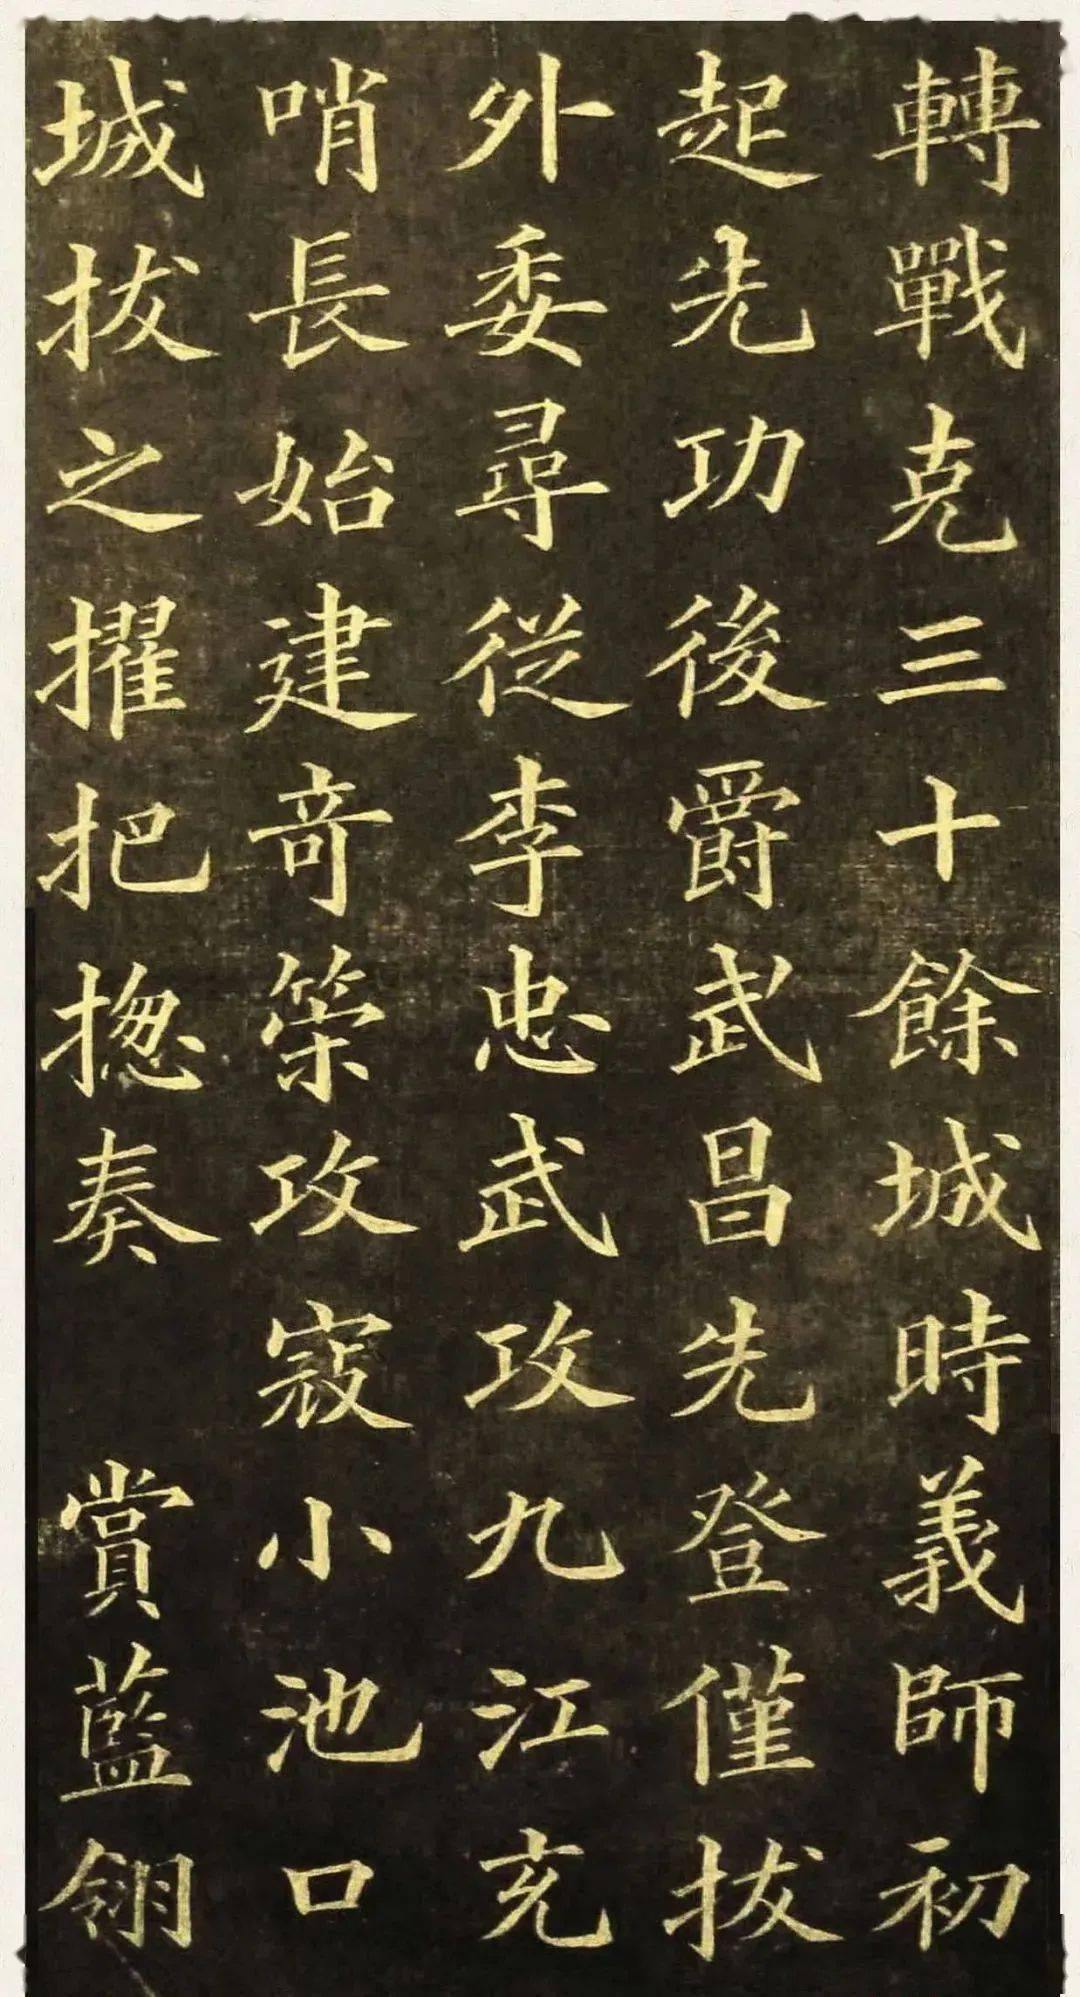 轉戰克三十餘城時義師初
起先功後爵武昌先登僅拔
外委尋從李忠武攻九江充
哨長始建奇策攻寇小池口
城拔之擢把揔奏 賞藍翎